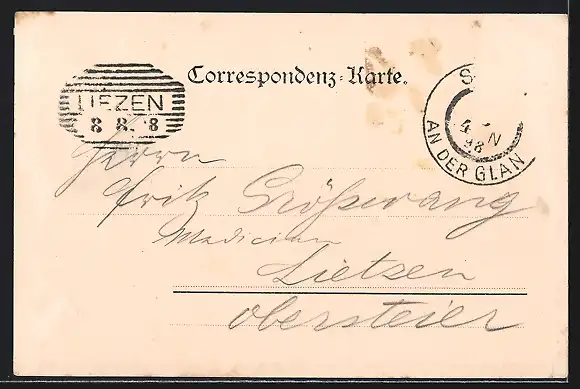 Correspondenz-Karte.
LIEZEN
8 8. 8
S
4 N
98
AN DER GLAN
Herrn
Fritz Größwang
Medician
Lietzen
Obersteier